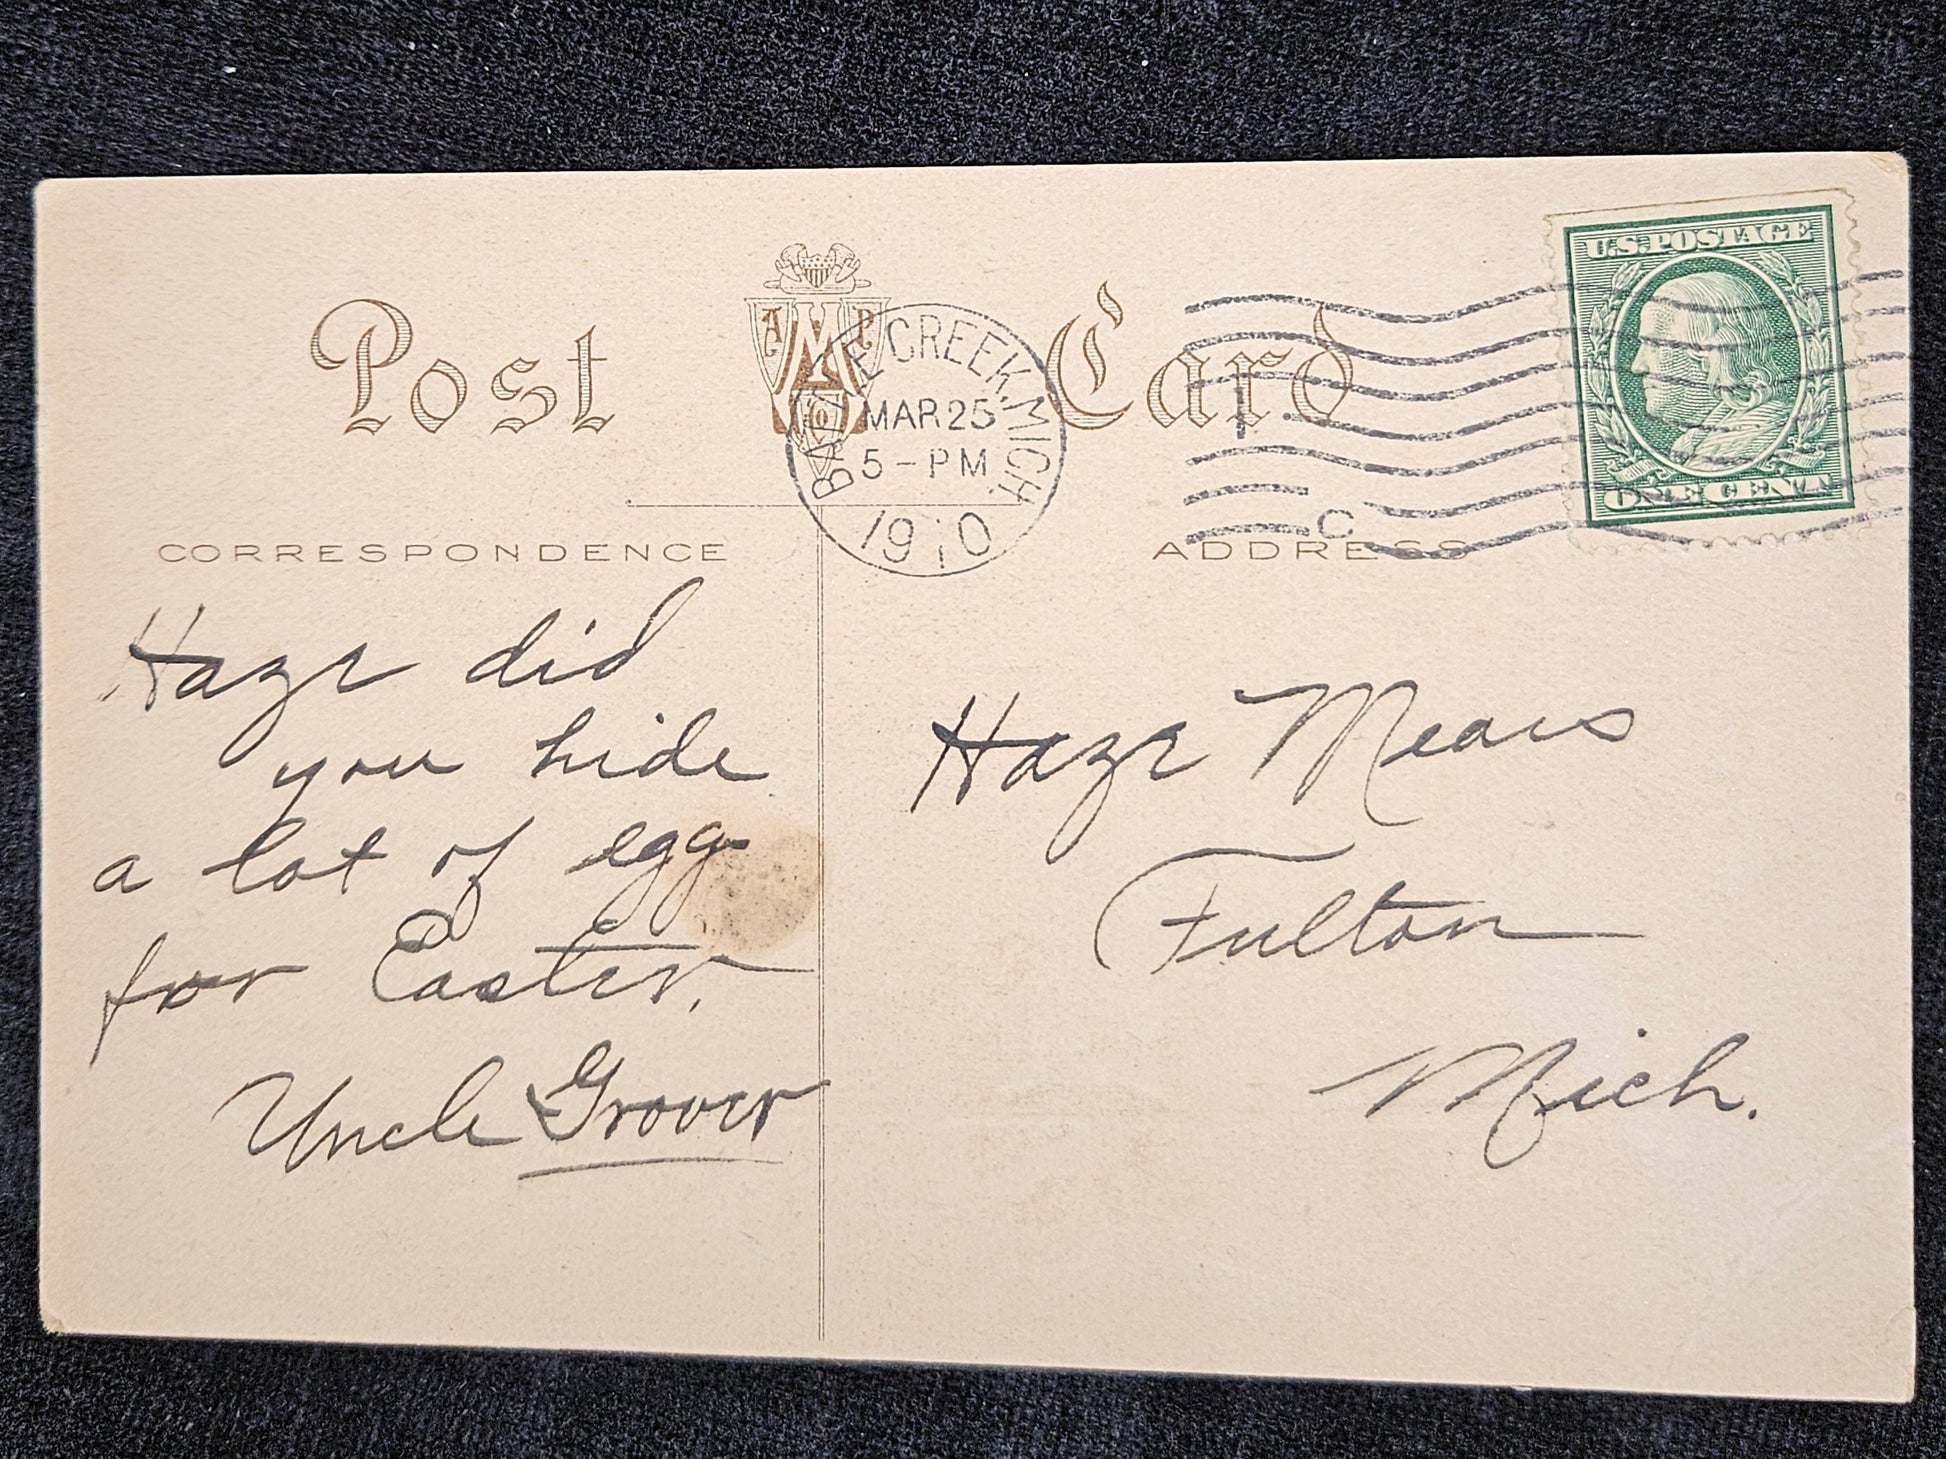 U.S. POSTAGE
Post Card
A M P
CO
BATTLE CREEK, MICH.
MAR 25
5-PM
1910
ONE CENT
C
CORRESPONDENCE
ADDRESS
Haze did
you hide
a lot of egg
for Easter.
Uncle Grover
Haze Mears
Fulton
Mich.